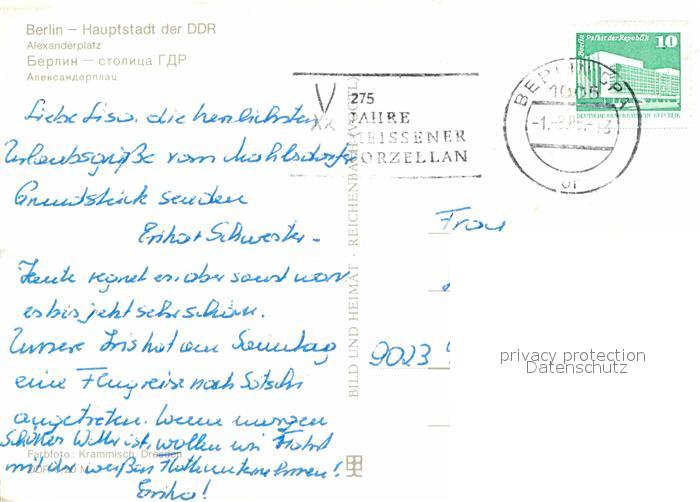 Berlin – Hauptstadt der DDR
Alexanderplatz
Берлин – столица ГДР
Александерплац
Berlin Palast der Republik 10
DEUTSCHE DEMOKRATISCHE REPUBLIK
BERLIN
1085
275
JAHRE
MEISSENER
PORZELLAN
Liebe Lisa, die herzlichsten
Urlaubsgrüße vom Mahlsdorfer
Grundstück senden
Schwester.
Heute regnet es, aber sonst war
es bis jetzt sehr schön.
Unsere Iris hat am Sonntag
eine Flugreise nach Sotschi
angetreten. Wenn morgen
schönes Wetter ist, wollen wir Fahrt
mit der weißen Flotte unternehmen!
BILD UND HEIMAT · REICHENBACH (VOGTL)
Frau
9023
privacy protection
Datenschutz
Farbfoto: Krammisch, Dresden